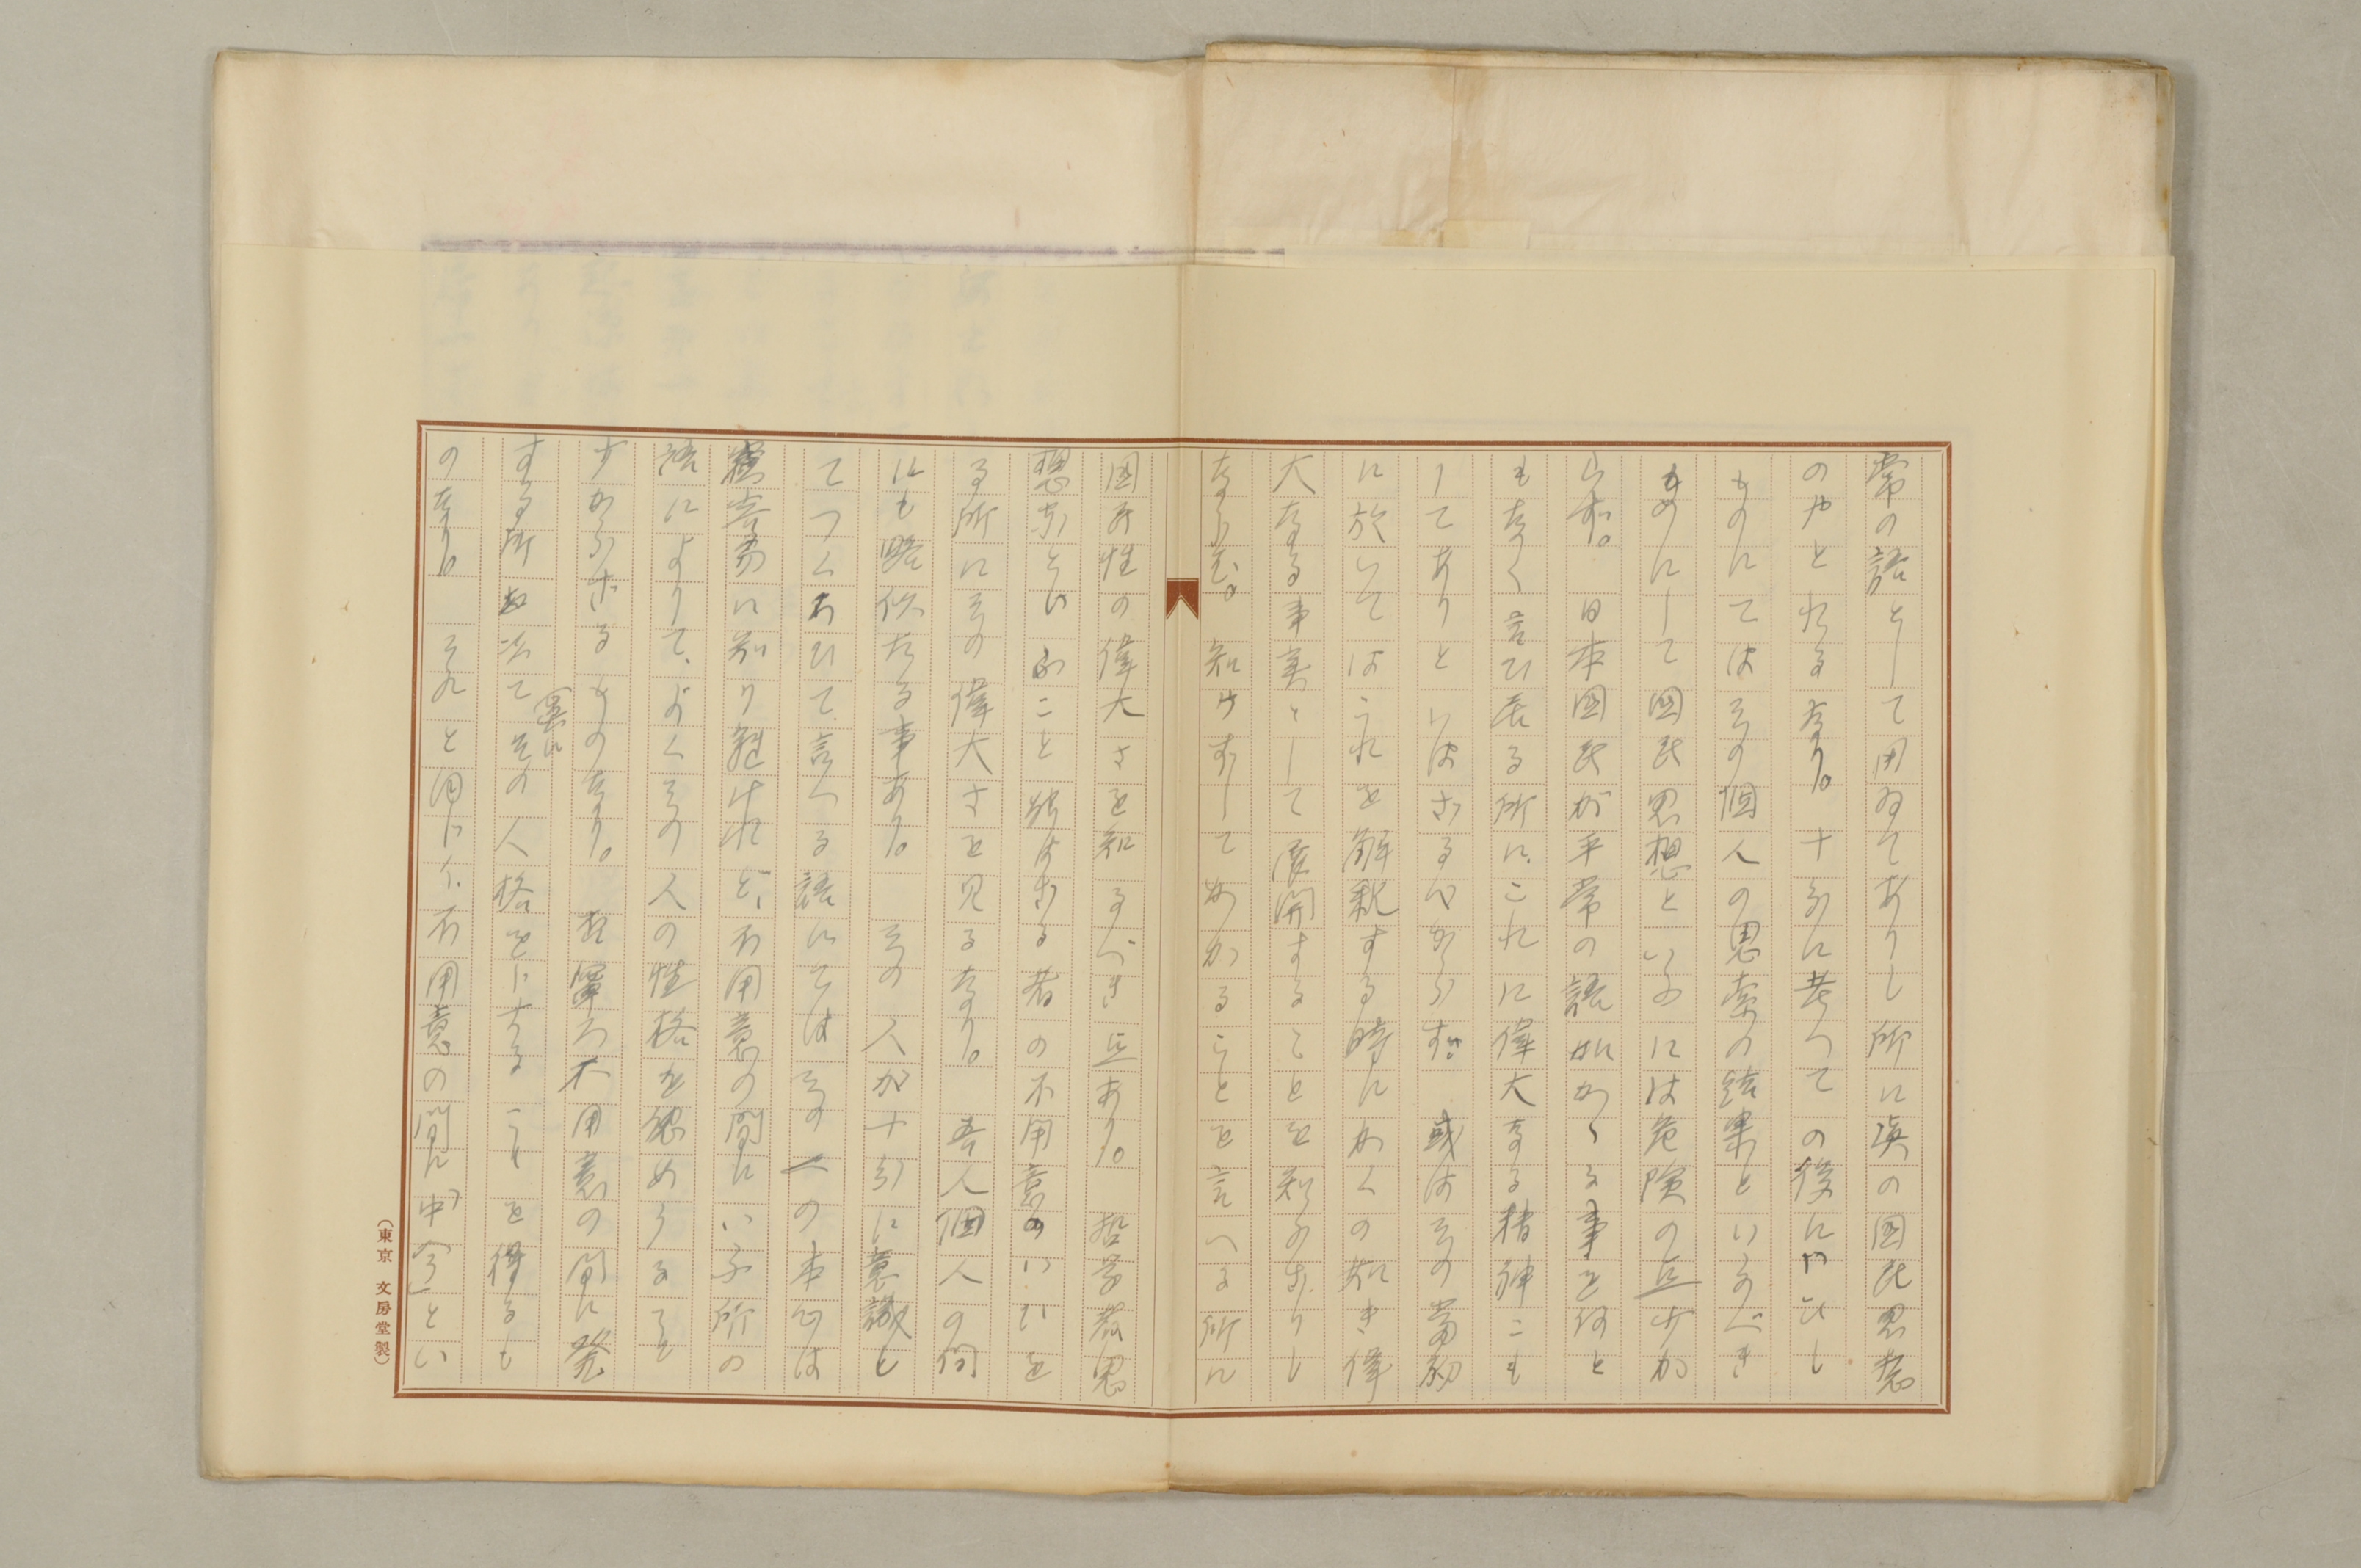 常の語として用ゐてありし所に眞の国民思想
のやとれるなり。十分に考へての後にいひし
ものにてはその個人の思索の結果といふべき
ものにして国民思想といふには危険の点少か
らず。日本国民が平常の語にかゝる事を何と
もなく言ひ居る所に、これに偉大なる精神こも
りてありといはざるべからず。或はその当初
に於いてはこれを解釈する時にかくの如き偉
大なる事実として展開することを知らざりし
ならむ。知らずしてかかることを言へる所に
国民性の偉大さを知るべき点あり。哲学者思
想家といふこと能はざる者の不用意のいひを
る所にその偉大さを見るなり。吾人個人の間
にも略似たる事あり。その人が十分に意識し
てつくろひて言へる語にてはその人の本心は
容易に別り難けれど、不用意の間にいふ所の
語によりて、よくその人の性格を認めうること
少からざるものなり。故寧ろ不用意の間に発
する所を以て(寧に)その人格を下すことを得るも
のなり。それと同じく、不用意の間に「中今」とい
(東京 文房堂製)